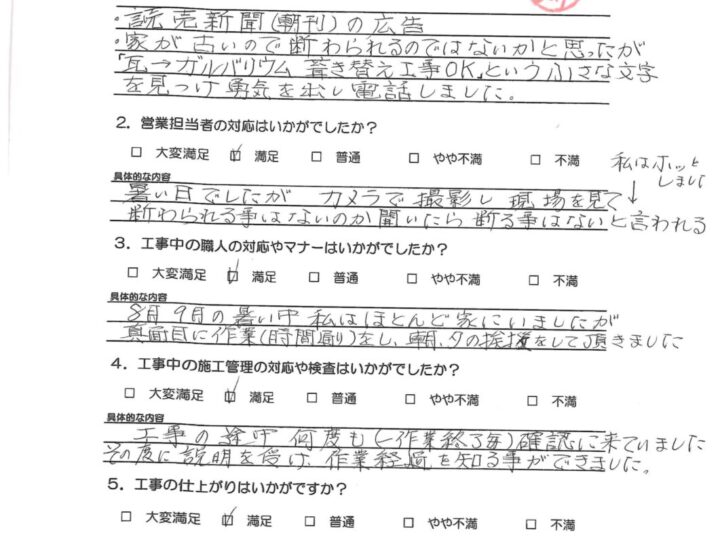 ・読売新聞(朝刊)の広告
・家が古いので断わられるのではないかと思ったが
「瓦→ガルバリウム 葺き替え工事OK」という小さな文字
を見つけ勇気を出し電話しました。
2. 営業担当者の対応はいかがでしたか？
□ 大変満足 ☑ 満足 □ 普通 □ やや不満 □ 不満
私はホッと
しました
具体的な内容
暑い日でしたが カメラで撮影し 現場を見て
断わられる事はないのか聞いたら断る事はないと言われる
3. 工事中の職人の対応やマナーはいかがでしたか？
□ 大変満足 ☑ 満足 □ 普通 □ やや不満 □ 不満
具体的な内容
8月9月の暑い中 私はほとんど家にいましたが
真面目に作業(時間通り)をし、朝、夕の挨拶をして頂きました
4. 工事中の施工管理の対応や検査はいかがでしたか？
□ 大変満足 ☑ 満足 □ 普通 □ やや不満 □ 不満
具体的な内容
工事の途中 何度も(一作業終了毎)確認に来ていました
その度に説明を受け、作業経過を知る事ができました。
5. 工事の仕上がりはいかがですか？
□ 大変満足 ☑ 満足 □ 普通 □ やや不満 □ 不満